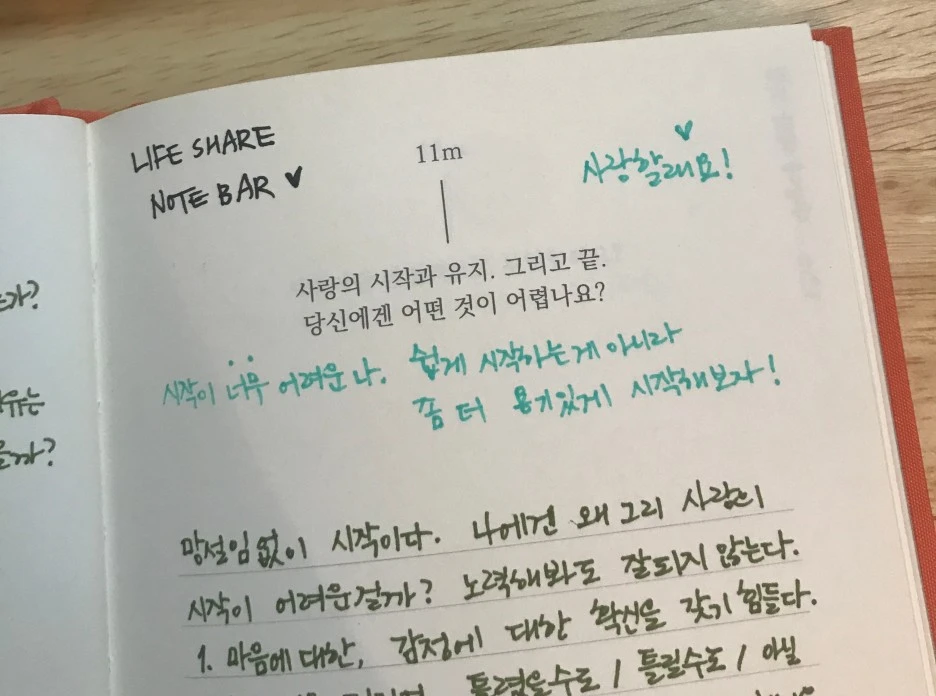 LIFE SHARE
NOTE BAR ♥
11m
사랑할래요!
사랑의 시작과 유지. 그리고 끝.
당신에겐 어떤 것이 어렵나요?
시작이 너무 어려운 나. 쉽게 시작하는게 아니라
좀 더 용기있게 시작해보자!
망설임없이 시작이다. 나에겐 왜 그리 사랑의
시작이 어려운걸까? 노력해봐도 잘되지 않는다.
1. 마음에 대한, 감정에 대한 확신을 갖기 힘들다.
틀렸을수도 / 틀릴수도 / 아닐